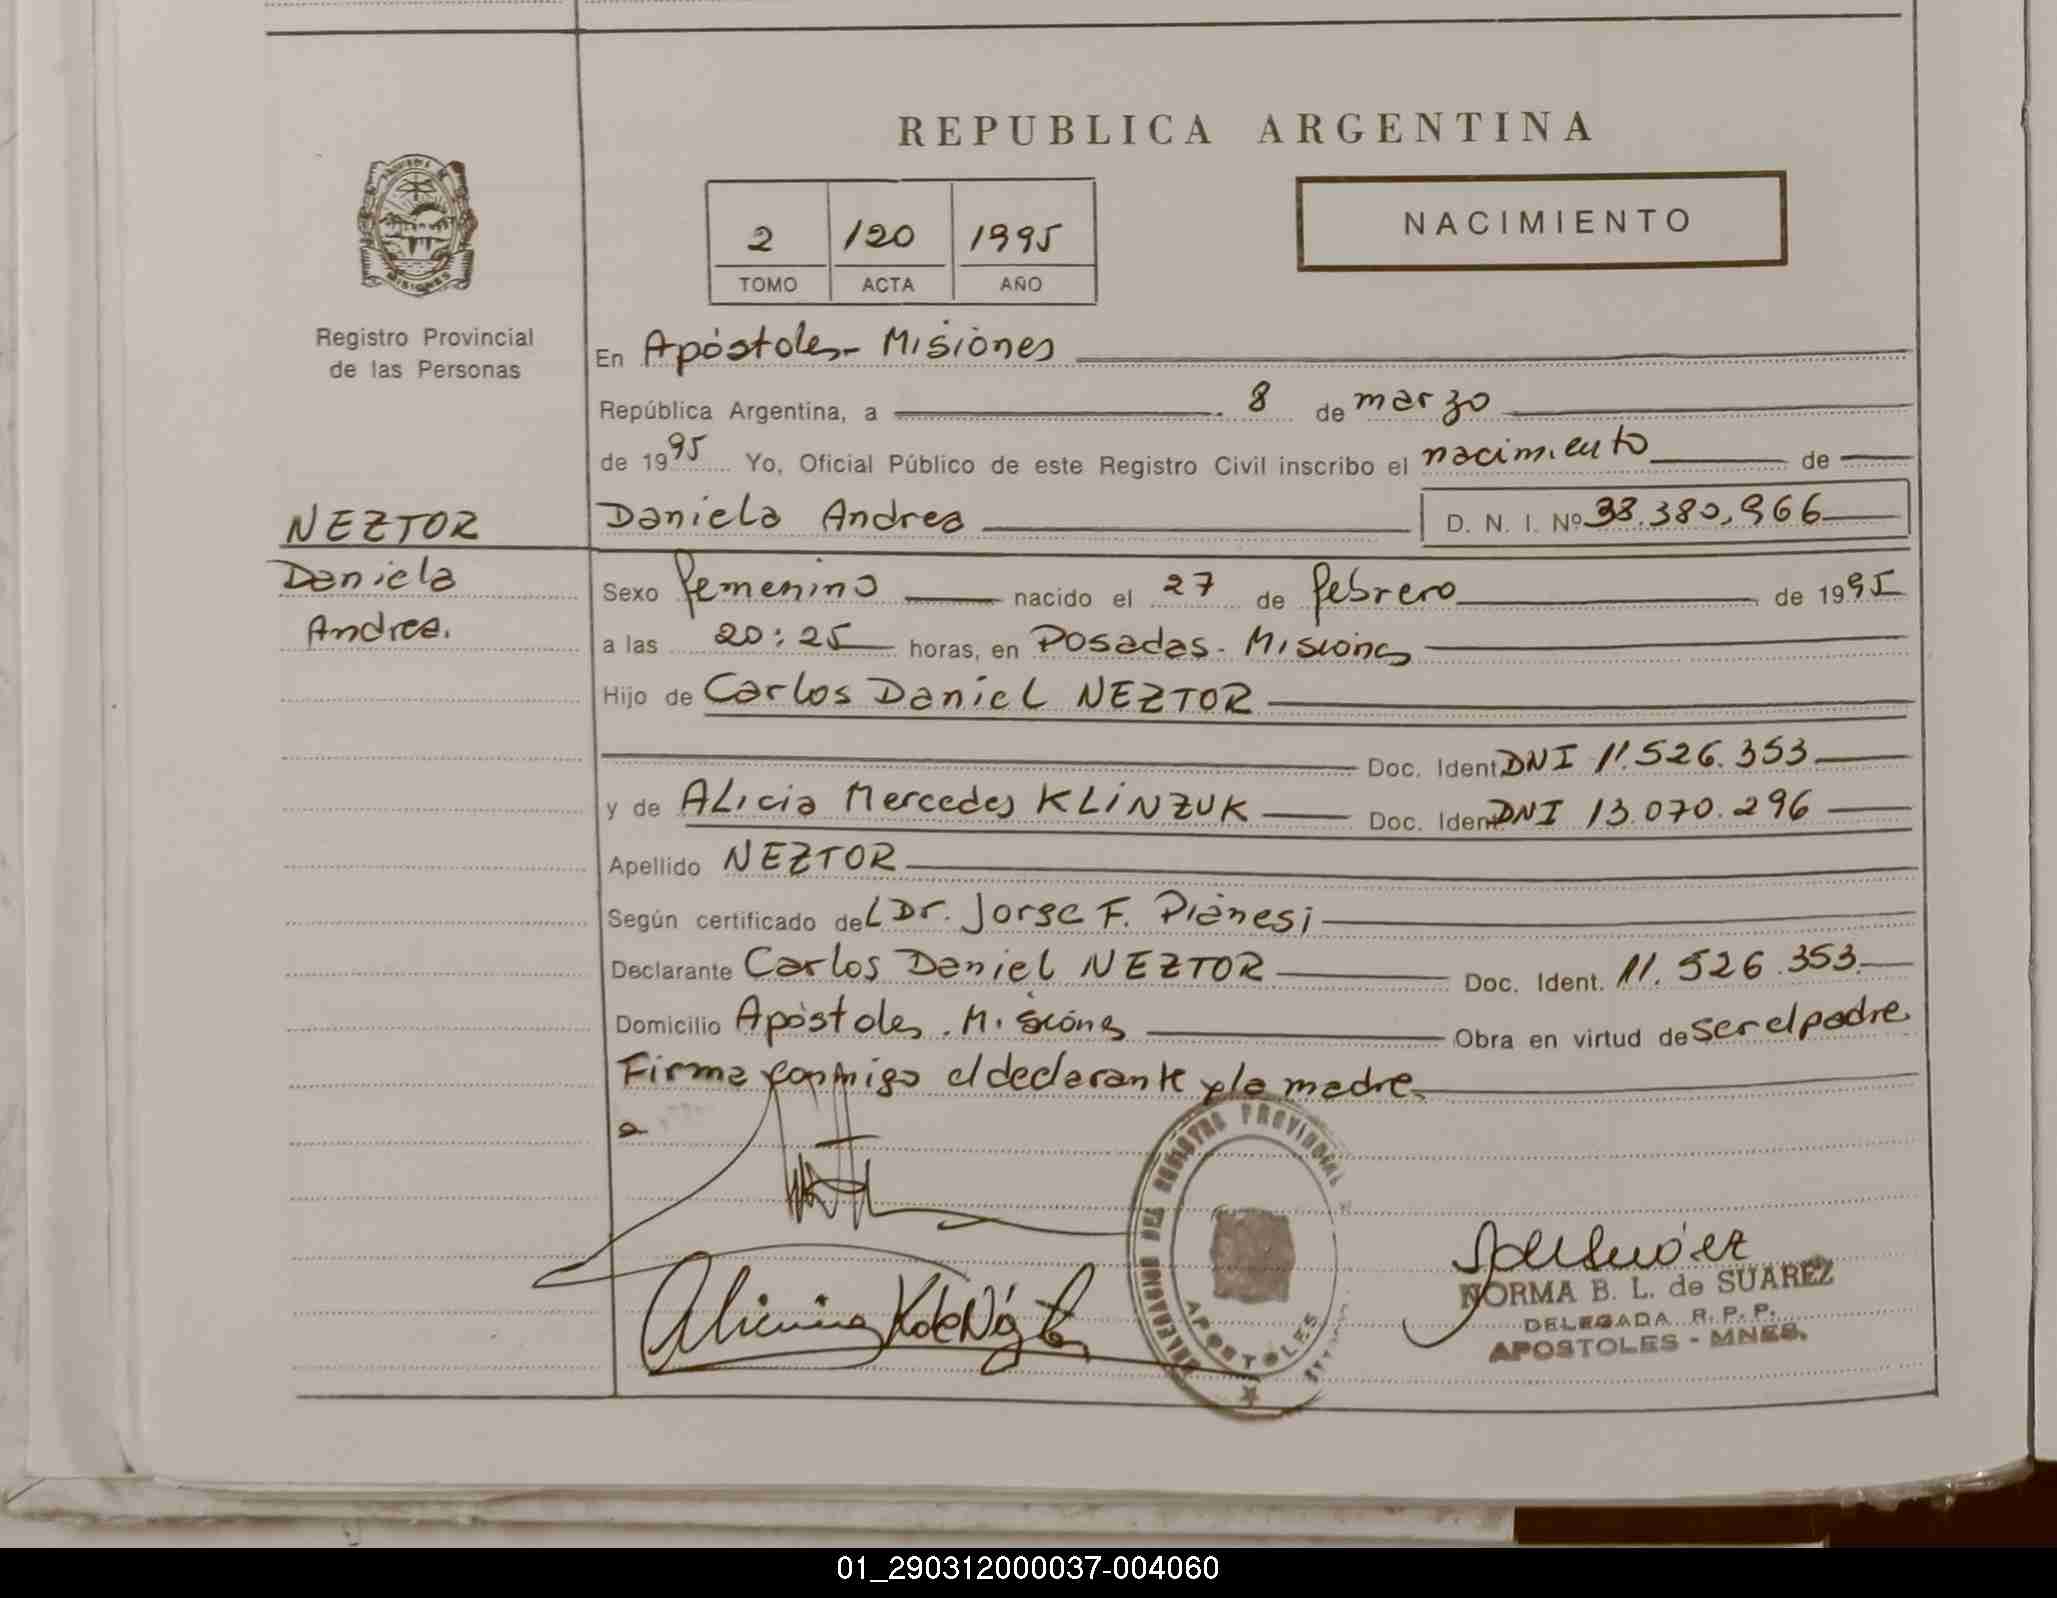 REPUBLICA ARGENTINA
NACIMIENTO
2 120 1995
TOMO ACTA AÑO
MISIONES
Registro Provincial
de las Personas
NEZTOR
Daniela
Andrea.
En Apóstoles - Misiones
República Argentina, a 8 de marzo
de 1995 Yo, Oficial Público de este Registro Civil inscribo el nacimiento de
Daniela Andrea D. N. I. Nº 38.380.966
Sexo femenino nacido el 27 de febrero de 1995
a las 20:25 horas, en Posadas - Misiones
Hijo de Carlos Daniel NEZTOR
Doc. Ident. DNI 11.526.353
y de Alicia Mercedes KLINZUK Doc. Ident. DNI 13.070.296
Apellido NEZTOR
Según certificado del Dr. Jorge F. Pianesi
Declarante Carlos Daniel NEZTOR Doc. Ident. 11.526.353
Domicilio Apóstoles. Misiones Obra en virtud de ser el padre
Firma conmigo el declarante y la madre
DELEGACION DEL REGISTRO PROVINCIAL
APOSTOLES
NORMA B. L. de SUAREZ
DELEGADA R. P. P.
APOSTOLES - MNES.
01_290312000037-004060